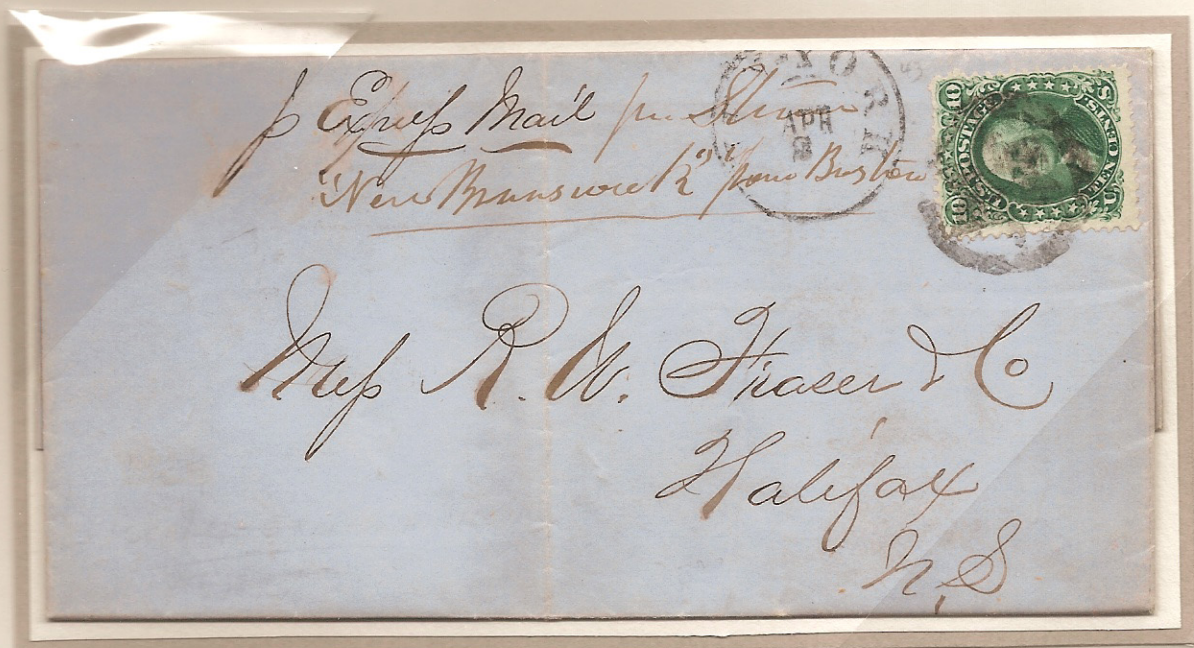 p Express Mail per Steamer
"New Brunswick" from Boston
YORK
APR
U.S. POSTAGE
TEN CENTS
10
10
U
S
Mess R. W. Fraser & Co
Halifax
N,S